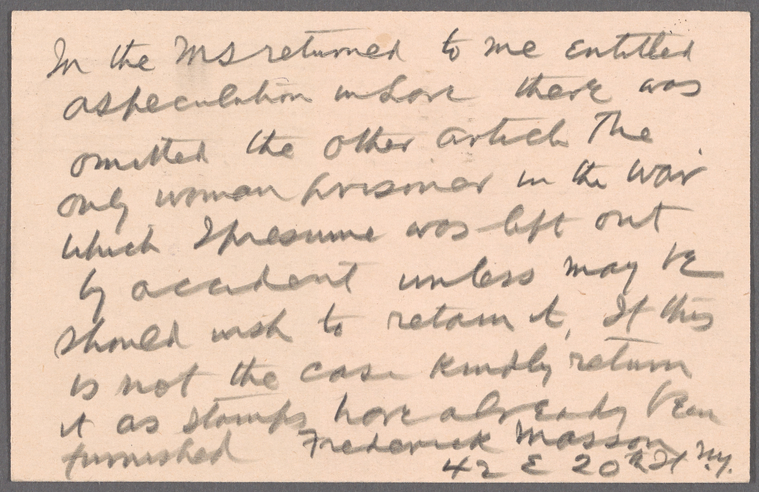 In the MS returned to me entitled
a speculation in Love there was
omitted the other article The
only woman prisoner in the War
which I presume was left out
by accident unless may be
should wish to retain it, If this
is not the case kindly return
it as stamps have already been
furnished Frederick Masson
42 E 20th St N.Y.